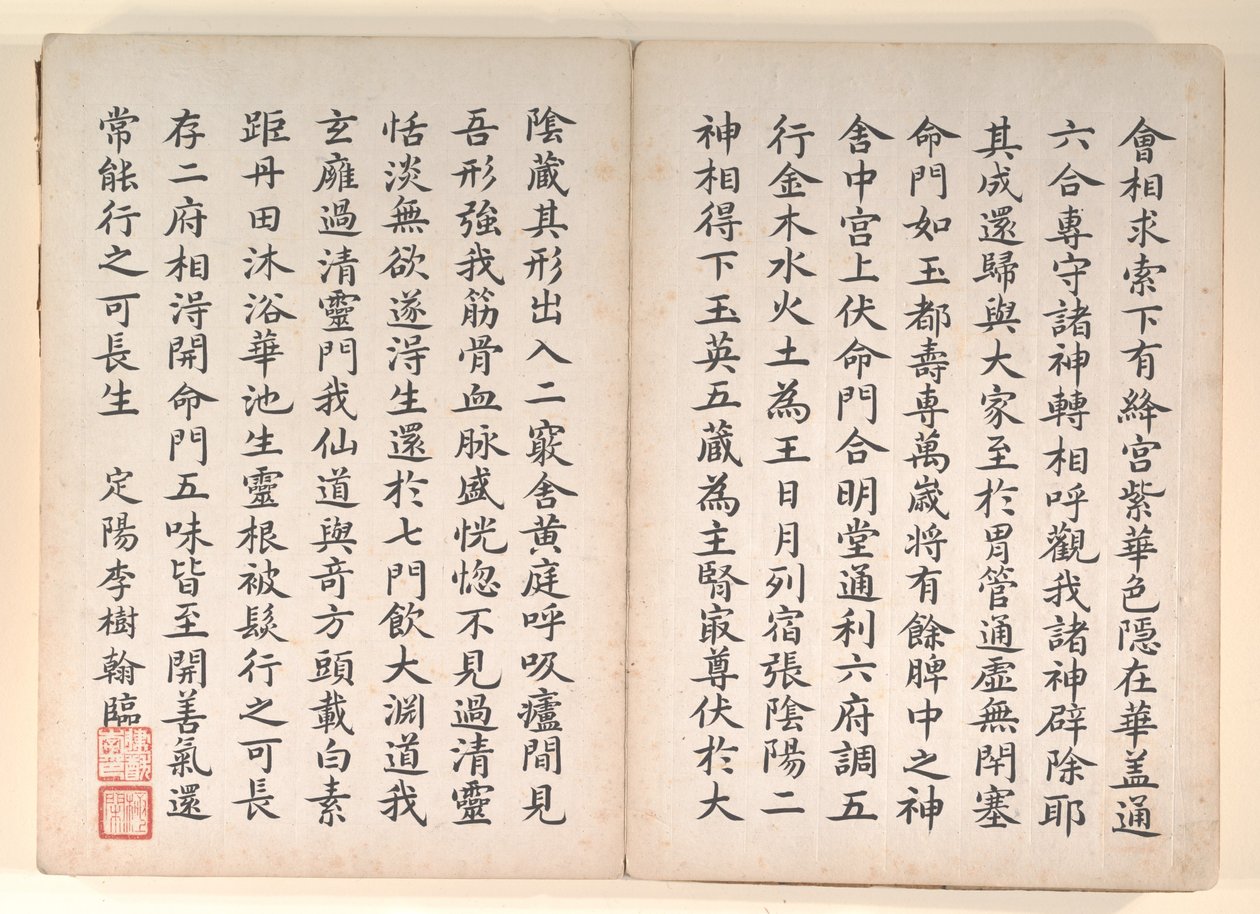 會相求索下有絳宮紫華色隱在華盖通
六合專守諸神轉相呼觀我諸神辟除耶
其成還歸與大家至於胃管通虛無閇塞
命門如玉都壽專萬歲将有餘脾中之神
舍中宮上伏命門合明堂通利六府調五
行金木水火土為王日月列宿張陰陽二
神相得下玉英五蔵為主腎㝡尊伏於大
陰蔵其形出入二竅舍黄庭呼吸廬間見
吾形強我筋骨血脉盛恍惚不見過清靈
恬淡無欲遂淂生還於七門飲大淵道我
玄廱過清靈門我仙道與竒方頭載白素
距丹田沐浴華池生靈根被髮行之可長
存二府相淂開命門五味皆至開善氣還
常能行之可長生 定陽李樹翰臨